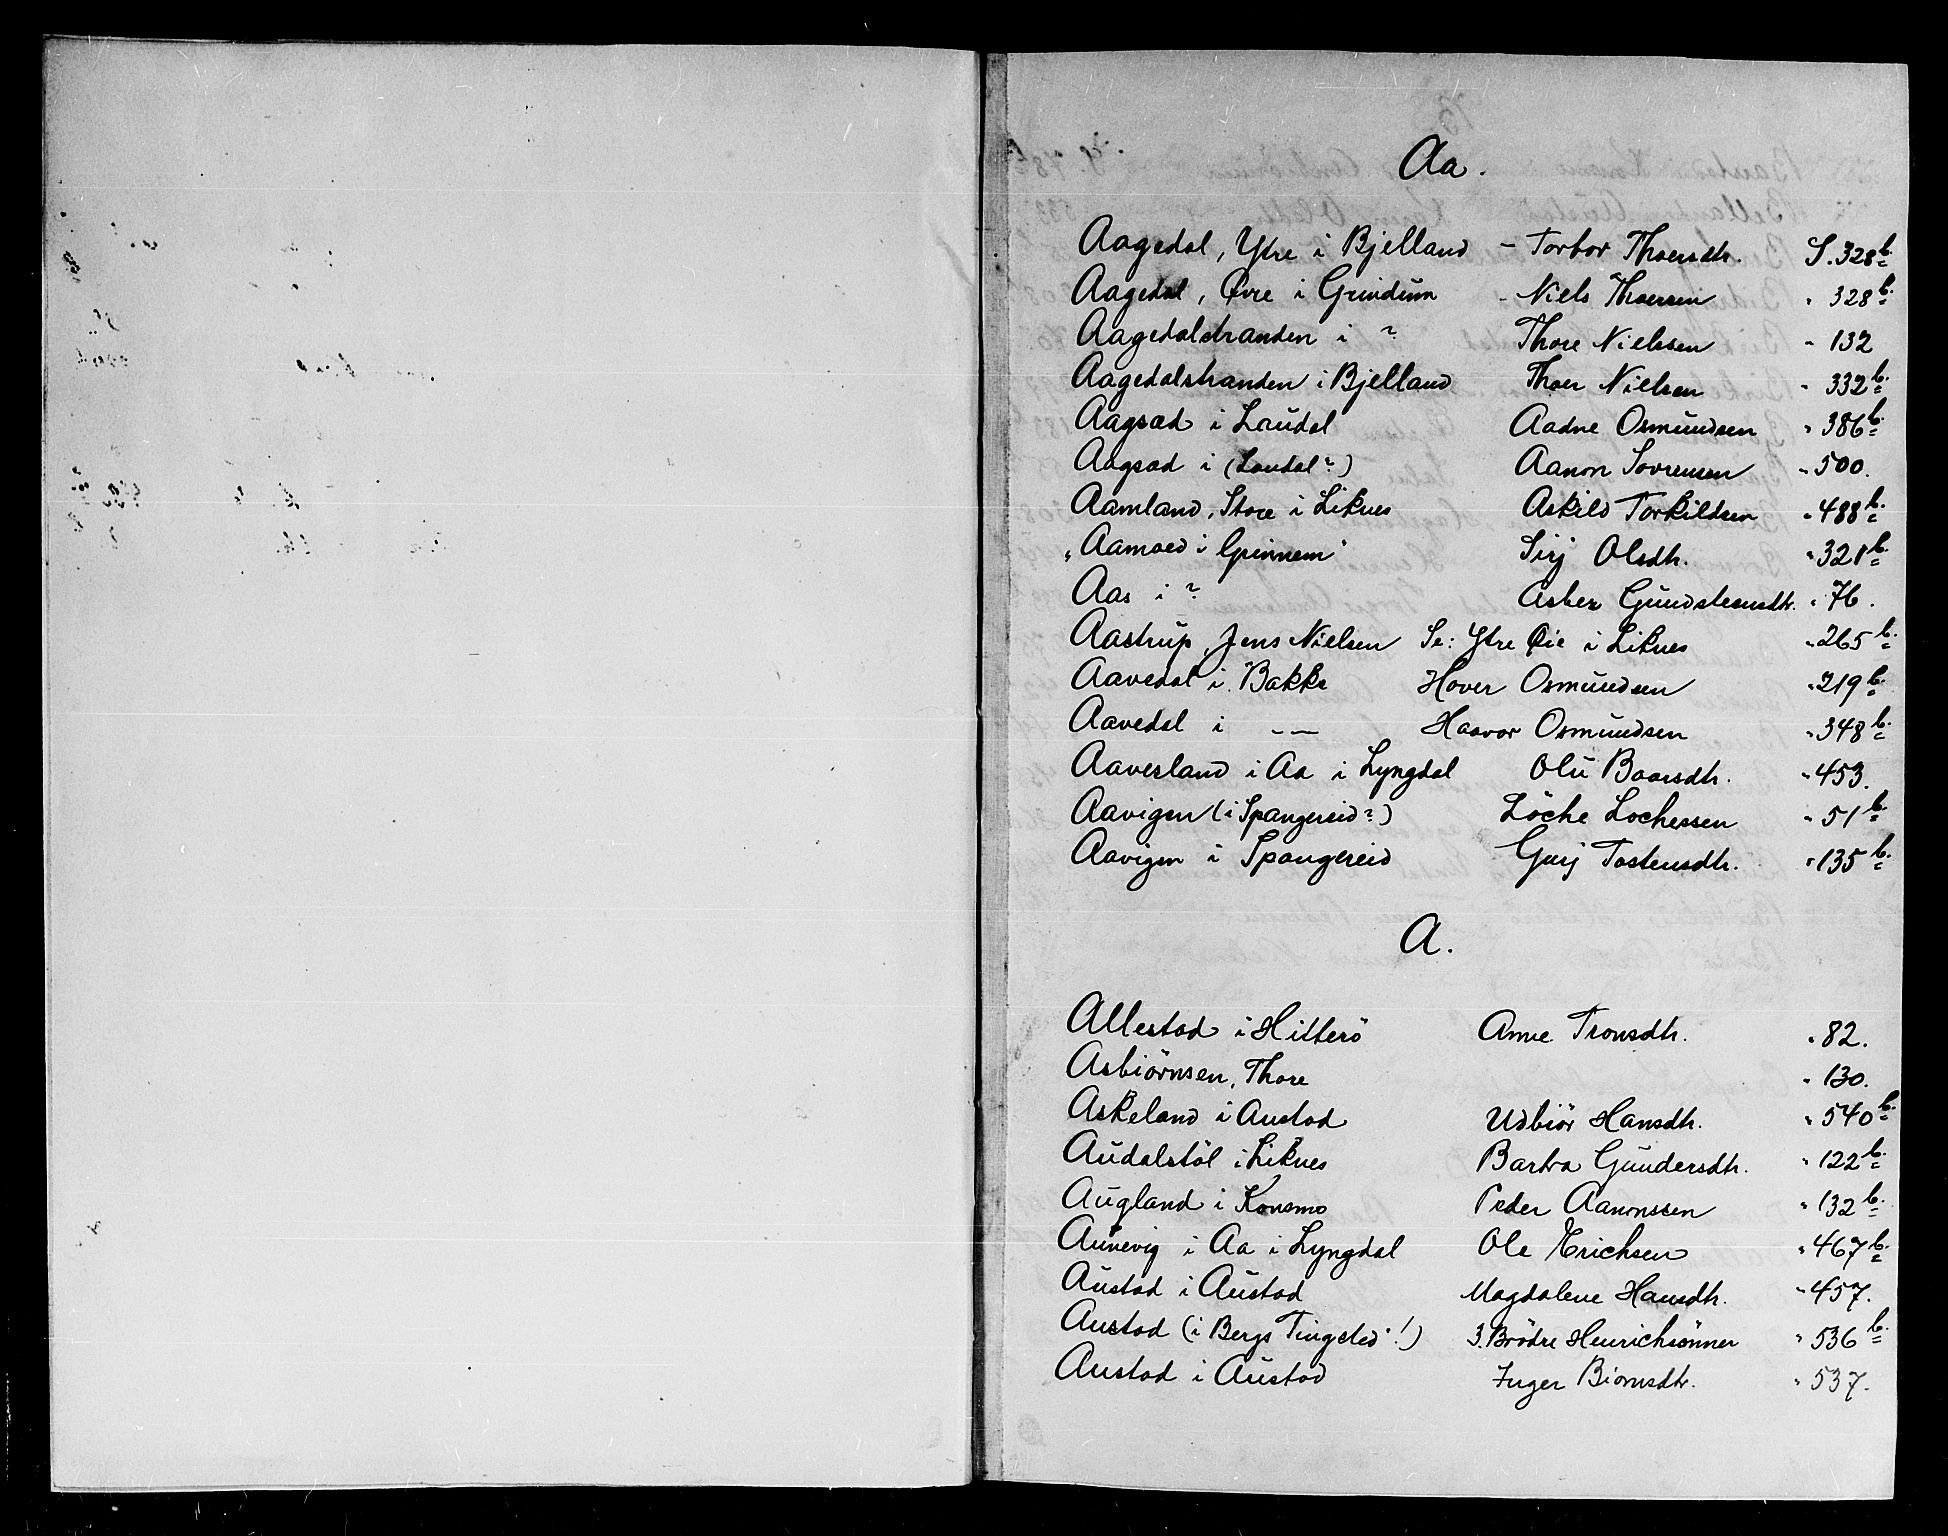 Aa.
Aagedal, Ytre i Bjelland - Torbor Thoersdtr. S. 328 b.
Aagedal, Øvre i Grindum - Niels Thoersen " 328 b.
Aagedalstranden i ? Thore Nielssen " 132
Aagedalstranden i Bjelland Thoer Nielsen " 332 b.
Aagsæd i Laudal Aadne Osmundsen " 386 b.
Aagsæd i (Laudal?) Aanon Sovrensen " 500.
Aamland, Store i Liknes Askild Torkildsen " 488 b.
"Aamoed i Grinnem" Sirj Olsdtr. " 321 b.
Aas i ? Asber Gundstensdtr. " 76.
Aastrup, Jens Nielsen Se: Ytre Øie i Liknes " 265 b.
Aavedal i Bakke Hover Osmundsen " 219 b.
Aavedal i -"- Haavor Osmundsen " 348 b.
Aavesland i Aa i Lyngdal Olu Baarsdtr. " 453.
Aavigen (i Spangereid?) Löche Lochessen " 51 b.
Aavigen i Spangereid Gurj Tostensdtr. " 135 b.
A.
Allestad i Hitterö Anne Tronsdtr. " 82.
Asbiörnsen, Thore " 130.
Askeland i Austad Udbiör Hansdtr. " 540 b.
Audalstöl i Liknes Barbra Gundersdtr. " 122 b.
Augland i Konsmo Peder Aanonssen " 132 b.
Aunevig i Aa i Lyngdal Ole Erichsen " 467 b.
Austad i Austad Magdalene Hansdtr. " 457.
Austad (i Bergs Tingsted"!) 3. Brödre Henrichsönner " 536 b.
Austad i Austad Inger Biornsdtr. " 537.